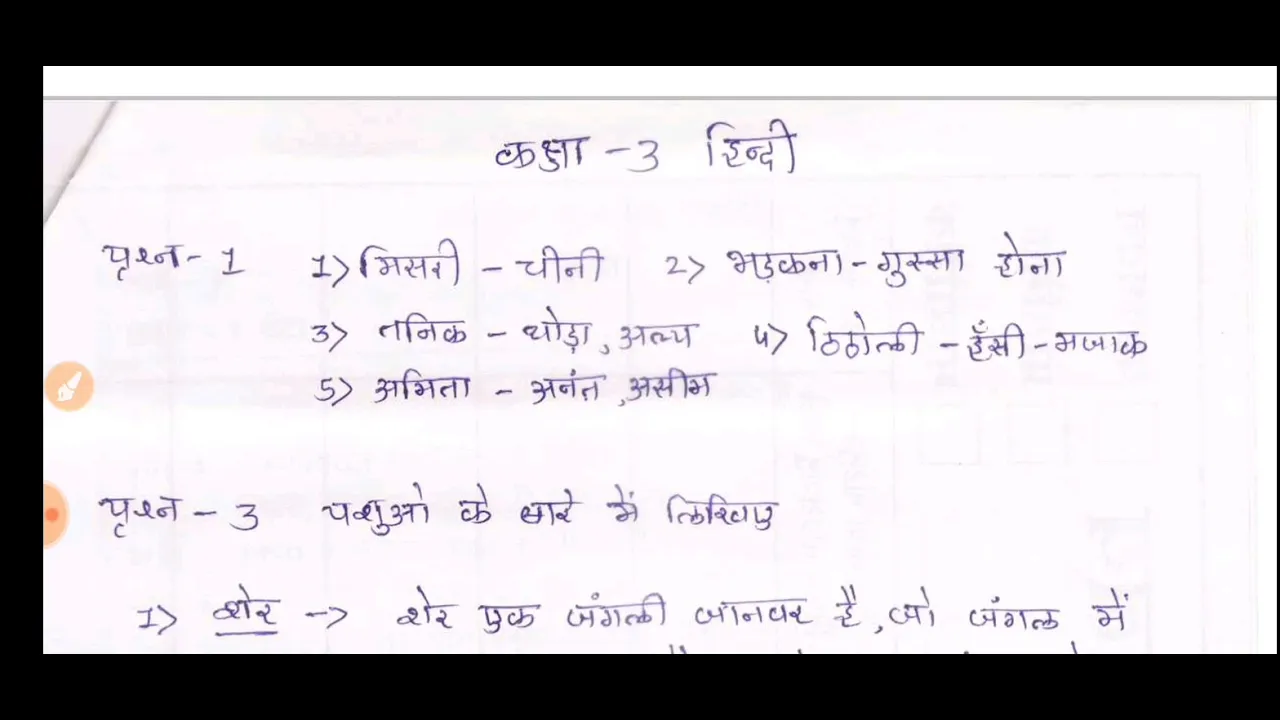 कक्षा - 3 हिन्दी
पृश्न - 1 1> मिसरी - चीनी 2> भड़कना - गुस्सा होना
3> तनिक - थोड़ा, अल्प 4> ठिठोली - हँसी - मजाक
5> अमिता - अनंत, असीम
पृश्न - 3 पशुओ के बारे में लिखिए
1> शेर -> शेर एक जंगली जानवर है, जो जंगल में